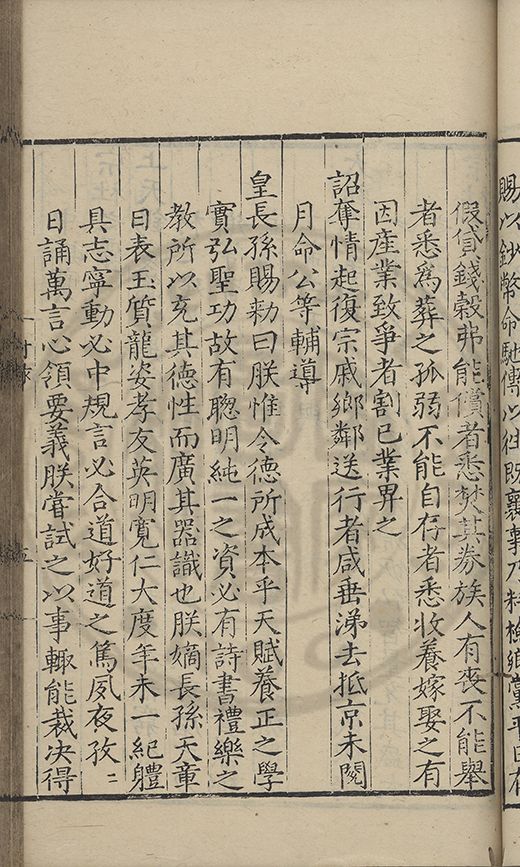 賜以鈔幣命馳傳以往既襄事乃粹檢鄉黨平日有
假貸錢穀弗能償者悉焚其券族人有喪不能舉
者悉爲葬之孤弱不能自存者悉收養嫁娶之有
因産業致爭者割已業畀之
詔奪情起復宗戚鄉鄰送行者咸垂涕去抵京未閱
月命公等輔導
皇長孫賜勑曰朕惟令德所成本乎天賦養正之學
實弘聖功故有聰明純一之資必有詩書禮樂之
教所以充其德性而廣其器識也朕嫡長孫天章
日表玉質龍姿孝友英明寬仁大度年未一紀體
具志寧動必中規言必合道好道之篤夙夜孜〻
日誦萬言心領要義朕嘗試之以事輙能裁决得